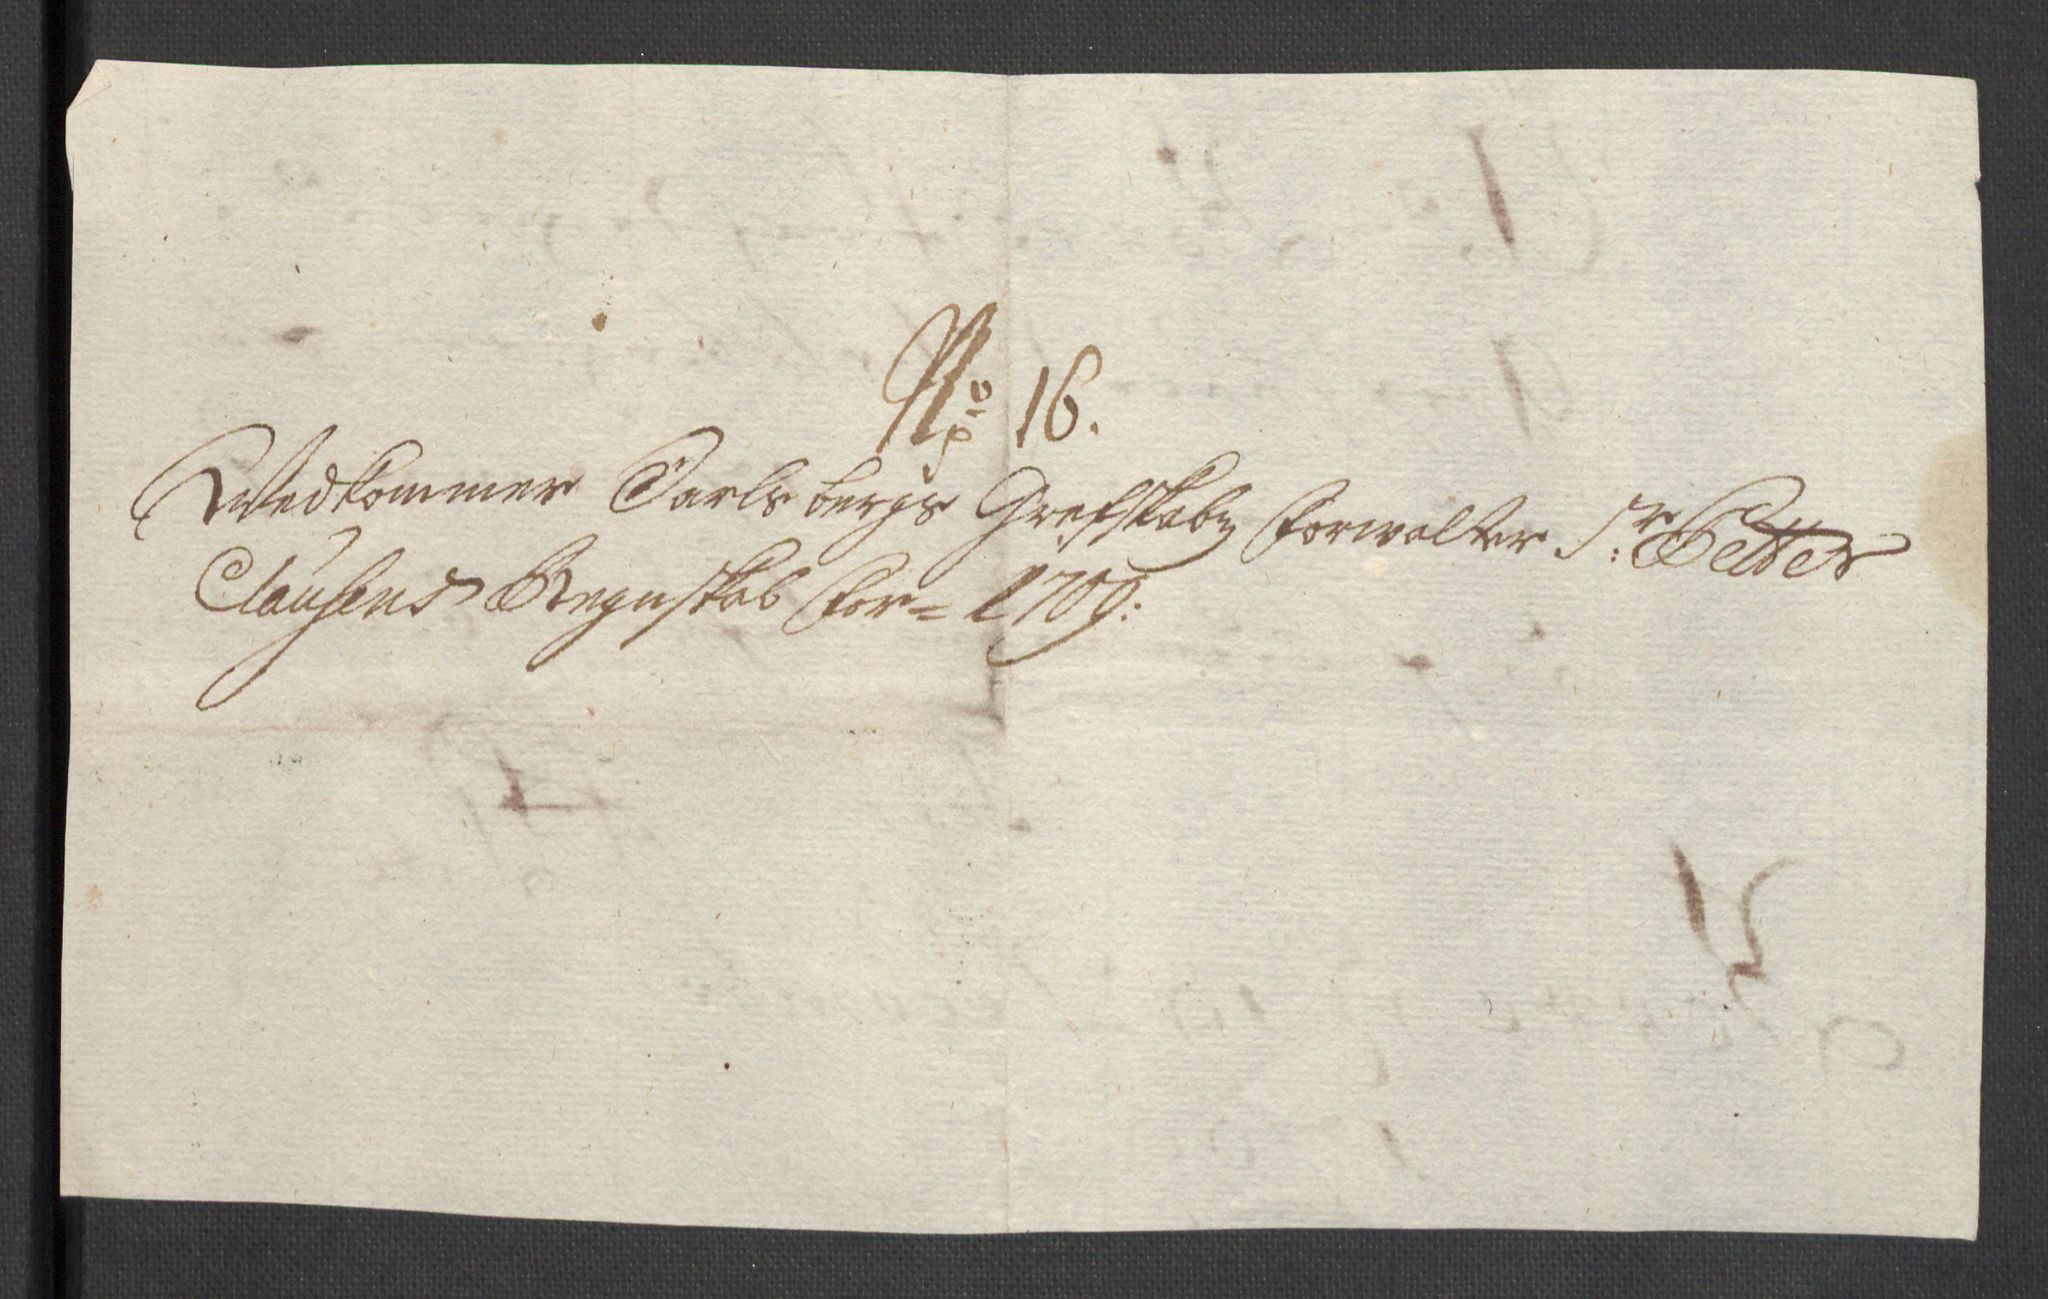 No 16.
Wedkommer Jarlsbergs Grefskabs Forwalter Sr: Petter
Clausens Regnskab for 1709: